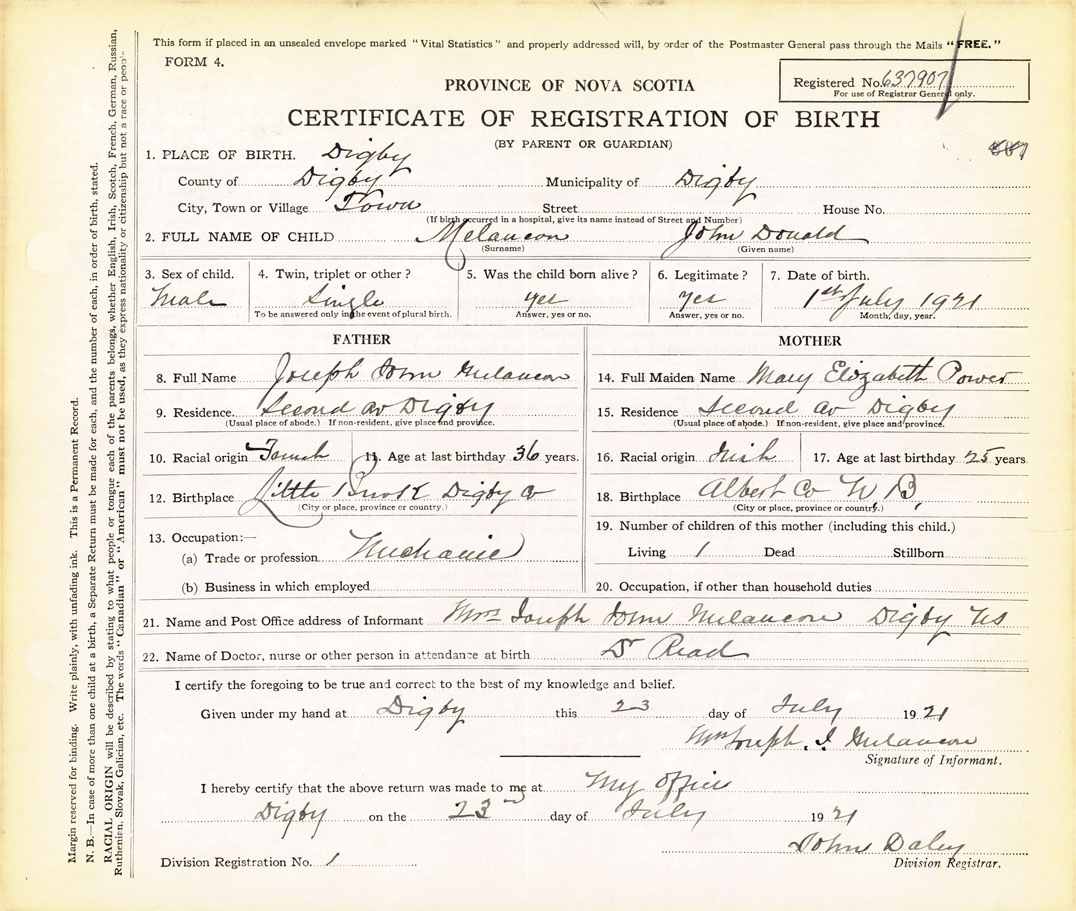 This form if placed in an unsealed envelope marked "Vital Statistics" and properly addressed will, by order of the Postmaster General pass through the Mails "FREE."
FORM 4.
Registered No. 637907
For use of Registrar General only.
PROVINCE OF NOVA SCOTIA
CERTIFICATE OF REGISTRATION OF BIRTH
(BY PARENT OR GUARDIAN)
1. PLACE OF BIRTH. Digby
County of Digby Municipality of Digby
City, Town or Village Town Street House No.
(If birth occurred in a hospital, give its name instead of Street and Number)
2. FULL NAME OF CHILD Melancon John Donald
(Surname) (Given name)
3. Sex of child. 4. Twin, triplet or other? 5. Was the child born alive? 6. Legitimate? 7. Date of birth.
Male Single yes yes 1st July 1921
To be answered only in the event of plural birth. Answer, yes or no. Answer, yes or no. Month, day, year.
FATHER MOTHER
8. Full Name Joseph John Melancon 14. Full Maiden Name Mary Elizabeth Power
9. Residence. Second av Digby 15. Residence Second av Digby
(Usual place of abode.) If non-resident, give place and province. (Usual place of abode.) If non-resident, give place and province.
10. Racial origin 11. Age at last birthday 36 years. 16. Racial origin Irish 17. Age at last birthday 25 years
12. Birthplace Little Brook Digby Co 18. Birthplace Albert Co N.B,
(City or place, province or country.) (City or place, province or country.)
13. Occupation:— 19. Number of children of this mother (including this child.)
(a) Trade or profession Mechanic Living 1 Dead Stillborn
(b) Business in which employed 20. Occupation, if other than household duties
21. Name and Post Office address of Informant Mrs Joseph John Melancon Digby NS
22. Name of Doctor, nurse or other person in attendance at birth Dr Read
I certify the foregoing to be true and correct to the best of my knowledge and belief.
Given under my hand at Digby this 23 day of July 1921
Mrs Joseph J Melancon
Signature of Informant.
I hereby certify that the above return was made to me at My Office
Digby on the 23nd day of July 1921
John Daley
Division Registrar.
Division Registration No. 1
Margin reserved for binding. Write plainly, with unfading ink. This is a Permanent Record.
N. B.—In case of more than one child at a birth, a Separate Return must be made for each, and the number of each, in order of birth, stated.
RACIAL ORIGIN will be described by stating to what people or tongue each of the parents belongs, whether English, Irish, Scotch, French, German, Russian,
Ruthenien, Slovak, Galician, etc. The words "Canadian" or "American" must not be used, as they express nationality or citizenship but not a race or people